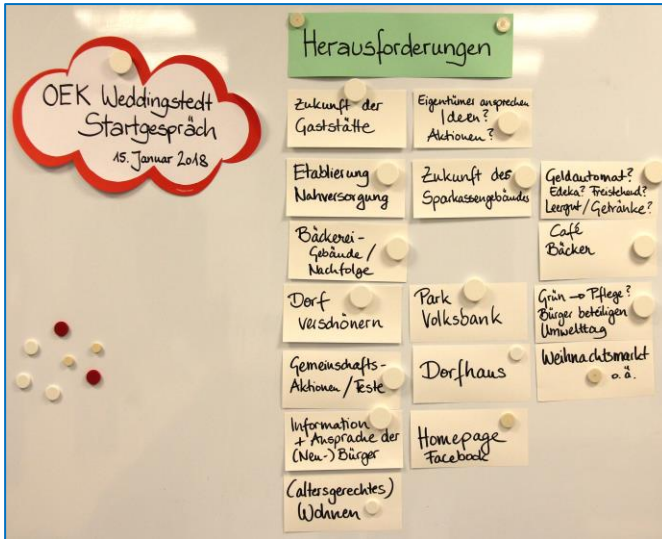 OEK Weddingstedt
Startgespräch
15. Januar 2018
Herausforderungen
Zukunft der
Gaststätte
Eigentümer ansprechen
Ideen?
Aktionen?
Etablierung
Nahversorgung
Zukunft des
Sparkassengebäudes
Geldautomat?
Edeka? Freistehend?
Leergut/Getränke?
Bäckerei-
Gebäude /
Nachfolge
Café
Bäcker
Dorf
verschönern
Park
Volksbank
Grün → Pflege?
Bürger beteiligen
Umwelttag
Gemeinschafts-
Aktionen / Feste
Dorfhaus
Weihnachtsmarkt
o.ä.
Information
+ Ansprache der
(Neu-) Bürger
Homepage
Facebook
(altersgerechtes)
Wohnen